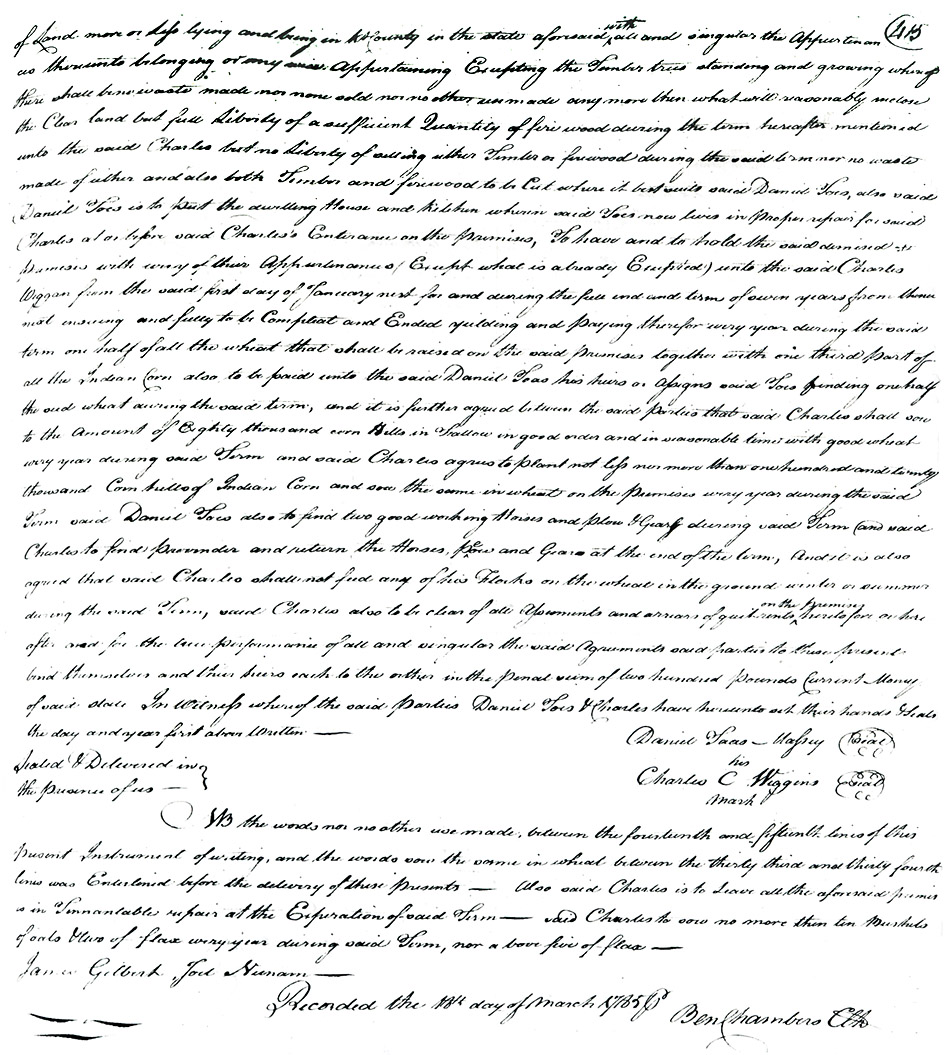 415
of Land more or less lying and being in Kt County in the state aforesaid, with all and singular the Appurtenan
as thereunto belonging or any wise Appertaining Excepting the Timber trees standing and growing whereof
there shall be no waste made nor none sold nor no other use made any more then what will reasonably inclose
the Clear land but full Liberty of a sufficient Quantity of fire wood during the term hereafter mentioned
unto the said Charles but no Liberty of selling either Timber or firewood during the said term nor no waste
made of either and also both Timber and firewood to be Cut where it best suits said Daniel Toes, also said
Daniel Toes is to put the dwelling House and Kitchen wherein said Toes now lives in Proper repair for said
Charles at or before said Charles's Enterance on the Premises, To have and to hold the said demised
Premises with every of their Appurtenances (Except what is already Excepted) unto the said Charles
Wiggan from the said first day of January next for and during the full end and term of seven years from thence
next ensuing and fully to be Compleat and Ended yielding and Paying therefor every year during the said
term one half of all the wheat that shall be raised on the said Premises together with one third part of
all the Indian Corn also to be paid unto the said Daniel Toas his heirs or Assigns said Toes finding one half
the seed wheat during the said term, and it is further agreed between the said Parties that said Charles shall sow
to the Amount of Eighty thousand corn Hills in Fallow in good order and in seasonable time with good wheat
every year during said Term and said Charles agrees to plant not less nor more than one hundred and twenty
thousand Corn hills of Indian Corn and sow the same in wheat on the Premises every year during the said
Term said Daniel Toes also to find two good working Horses and Plow & Gears during said Term (and said
Charles to find Provender and return the Horses, Plow and Gears at the end of the term, And it is also
agreed that said Charles shall not feed any of his Flocks on the wheat in the ground winter or summer
during the said Term, said Charles also to be clear of all Assesments and arrears of quitrents on the Premises heretofore or here
after and for the true performance of all and singular the said Agreements said parties to these present
bind themselves and their heirs each to the other in the Penal sum of two hundred Pounds Current Money
of said state In Witness whereof the said Parties Daniel Toes & Charles have hereunto set their hands & Seals
the day and year first above Written —
Daniel Toas — Massey (Seal)
Sealed & Delivered in
the Presence of us —
his
Charles C Wiggins (Seal)
mark
NB the words nor no other use made, between the fourteenth and fifteenth lines of this
present Instrument of writing, and the words sow the same in wheat between the thirty third and thirty fourth
lines was Enterlined before the delivery of these Presents — Also said Charles is to Leave all the aforesaid premis
es in Tennantable repair at the Experation of said Term — said Charles to sow no more then ten Bushels
of oats & two of flax every year during said Term, nor above five of flax —
James Gilbert, Joel Nunam —
Recorded the 18th day of March 1785
Ben Chambers Clk